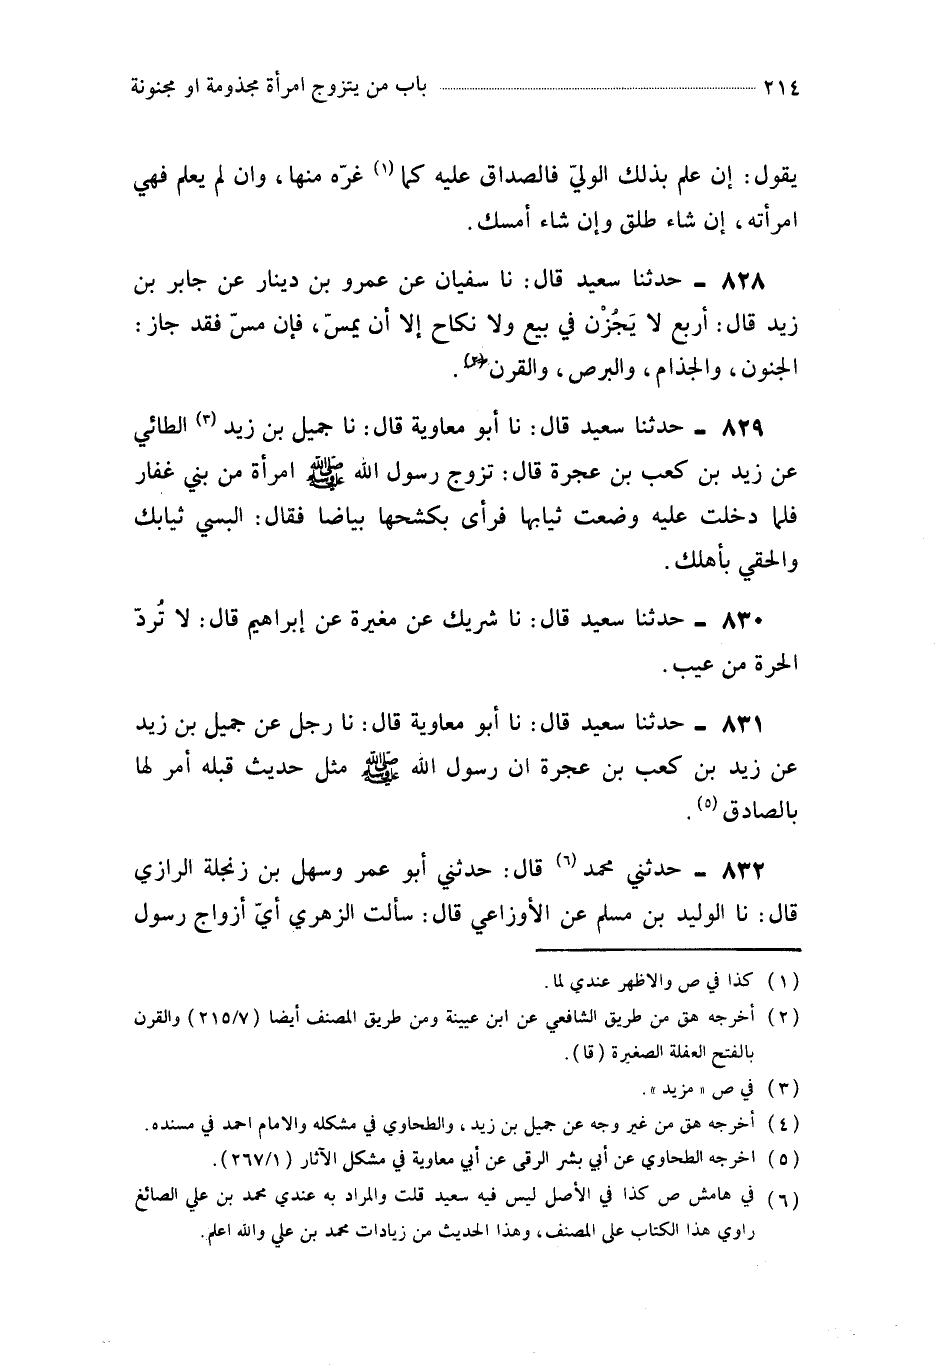 ٢١٤ باب من يتزوج امرأة مجذومة او مجنونة
يقول: إن علم بذلك الوليّ فالصداق عليه كما (١) غرّه منها، وان لم يعلم فهي
امرأته، إن شاء طلق وإن شاء أمسك.
٨٢٨ ـ حدثنا سعيد قال: نا سفيان عن عمرو بن دينار عن جابر بن
زيد قال: أربع لا يَجُزْن في بيع ولا نكاح إلا أن يمسّ، فإن مسّ فقد جاز:
الجنون، والجذام، والبرص، والقرن(٢).
٨٢٩ ـ حدثنا سعيد قال: نا أبو معاوية قال: نا جميل بن زيد (٣) الطائي
عن زيد بن كعب بن عجرة قال: تزوج رسول الله ﷺ امرأة من بني غفار
فلما دخلت عليه وضعت ثيابها فرأى بكشحها بياضا فقال: البسي ثيابك
والحقي بأهلك.
٨٣٠ ـ حدثنا سعيد قال: نا شريك عن مغيرة عن إبراهيم قال: لا تُردّ
الحرة من عيب.
٨٣١ ـ حدثنا سعيد قال: نا أبو معاوية قال: نا رجل عن جميل بن زيد
عن زيد بن كعب بن عجرة ان رسول الله ﷺ مثل حديث قبله أمر لها
بالصادق (٥).
٨٣٢ ـ حدثني محمد (٦) قال: حدثني أبو عمر وسهل بن زنجلة الرازي
قال: نا الوليد بن مسلم عن الأوزاعي قال: سألت الزهري أيّ أزواج رسول
(١) كذا في ص والاظهر عندي لما.
(٢) أخرجه هق من طريق الشافعي عن ابن عيينة ومن طريق المصنف أيضا (٢١٥/٧) والقرن
بالفتح العفلة الصغيرة (قا).
(٣) في ص «مزيد».
(٤) أخرجه هق من غير وجه عن جميل بن زيد، والطحاوي في مشكله والامام احمد في مسنده.
(٥) اخرجه الطحاوي عن أبي بشر الرقى عن أبي معاوية في مشكل الآثار (٢٦٧/١).
(٦) في هامش ص كذا في الأصل ليس فيه سعيد قلت والمراد به عندي محمد بن علي الصائغ
راوي هذا الكتاب على المصنف، وهذا الحديث من زيادات محمد بن علي والله اعلم.